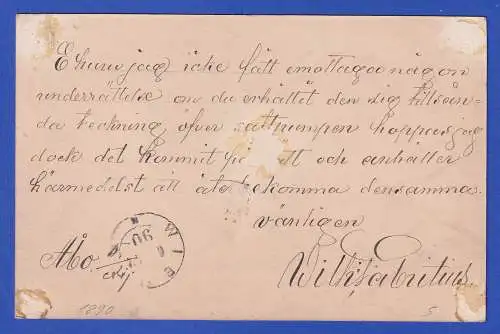 Ehuru jag icke fått emottaga någon
underrättelse om du erhållet den dig tillsän-
da teckning öfver sattrumpen hoppas jag
dock det kommit på rätt och anhåller
härmedelst att åter bekomma densamma.
vänligen
Åbo
Wilh Fabritius
WI
90
1890